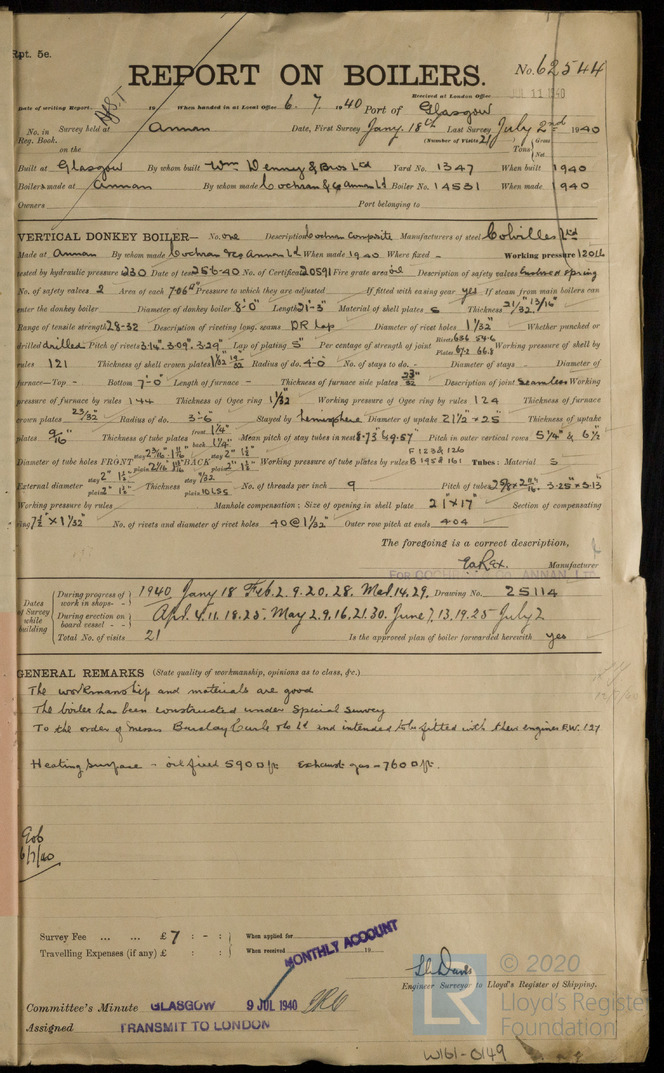 Rpt. 5e.
REPORT ON BOILERS.
No. 62544
Received at London Office JUL 11 1940
Date of writing Report. 19 When handed in at Local Office 6. 7. 1940 Port of Glasgow
No. in Reg. Book. Survey held at Annan Date, First Survey Jany. 18th Last Survey July 2nd 1940
(Number of Visits 21)
on the Tons { Gross Net
Built at Glasgow By whom built Wm Denny & Bros Ld Yard No. 1347 When built 1940
Boilers made at Annan By whom made Cochran & Co Annan Ld Boiler No. 14531 When made 1940
Owners Port belonging to
VERTICAL DONKEY BOILER— No. one Description Cochran Composite Manufacturers of steel Colvilles Ltd
Made at Annan By whom made Cochran & Co Annan Ld When made 1940 Where fixed - Working pressure 120 lb
tested by hydraulic pressure 230 Date of test 25-6-40 No. of Certificate 20591 Fire grate area oil Description of safety valves Enclosed spring
No. of safety valves 2 Area of each 7.06" Pressure to which they are adjusted If fitted with easing gear yes If steam from main boilers can
enter the donkey boiler Diameter of donkey boiler 8'-0" Length 21'-3" Material of shell plates S Thickness 21/32" 13/16"
Range of tensile strength 28-32 Description of riveting long. seams DR lap Diameter of rivet holes 1 1/32" Whether punched or
drilled drilled Pitch of rivets 3.16" 3.09" 3.29" Lap of plating 5" Per centage of strength of joint Rivets 63.6 54.6 Plates 67.2 66.8 Working pressure of shell by
rules 121 Thickness of shell crown plates 1 1/32 19/32 Radius of do. 4'-0 No. of stays to do. - Diameter of stays - Diameter of
furnace—Top - Bottom 7'-0" Length of furnace - Thickness of furnace side plates 23/32" Description of joint Seamless Working
pressure of furnace by rules 144 Thickness of Ogee ring 1 1/32" Working pressure of Ogee ring by rules 124 Thickness of furnace
crown plates 23/32" Radius of do. 3'-6 Stayed by hemisphere Diameter of uptake 21 1/2" × 25" Thickness of uptake
plates 9/16" Thickness of tube plates front 1 1/4" back 1 1/4" Mean pitch of stay tubes in nests 8.73" & 9.57" Pitch in outer vertical rows 5 1/4" & 6 1/2"
Diameter of tube holes FRONT stay plain BACK stay 2" 1 1/2" plain 2" 1 1/2" Working pressure of tube plates by rules F 123 & 126 B 195 & 161 Tubes: Material S
External diameter stay 2" 1 1/2" plain 2" 1 1/2" Thickness stay 9/32 plain 10 LSG No. of threads per inch 9 Pitch of tubes 3.25" × 3.13"
Working pressure by rules Manhole compensation: Size of opening in shell plate 21" × 17" Section of compensating
ring 7 1/2" × 1 1/32" No. of rivets and diameter of rivet holes 40 @ 1 1/32" Outer row pitch at ends 4.04
The foregoing is a correct description,
Manufacturer
FOR COCHRAN & CO. ANNAN, LTD.
Dates of Survey while building
During progress of work in shops- - 1940 Jany 18 Feb. 2. 9. 20. 28. Mch. 14. 29. Drawing No. 25114
During erection on board vessel - - Apl. 4. 11. 18. 25. May 2. 9. 16. 21. 30. June 7, 13. 19. 25 July 2
Total No. of visits 21 Is the approved plan of boiler forwarded herewith yes
GENERAL REMARKS (State quality of workmanship, opinions as to class, &c.)
The workmanship and materials are good
The boiler has been constructed under Special Survey
To the order of Messrs Barclay Curle & Co Ld and intended to be fitted with their engines E.W. 127
Heating surface - oil fired 590 □ ft. Exhaust gas - 760 □ ft.
6/7/40
Survey Fee ... ... £ 7 : - : When applied for
Travelling Expenses (if any) £ : : When received 19
MONTHLY ACCOUNT
Engineer Surveyor to Lloyd's Register of Shipping.
Committee's Minute GLASGOW 9 JUL 1940
Assigned TRANSMIT TO LONDON
LR
© 2020
Lloyd's Register
Foundation
W161-0149